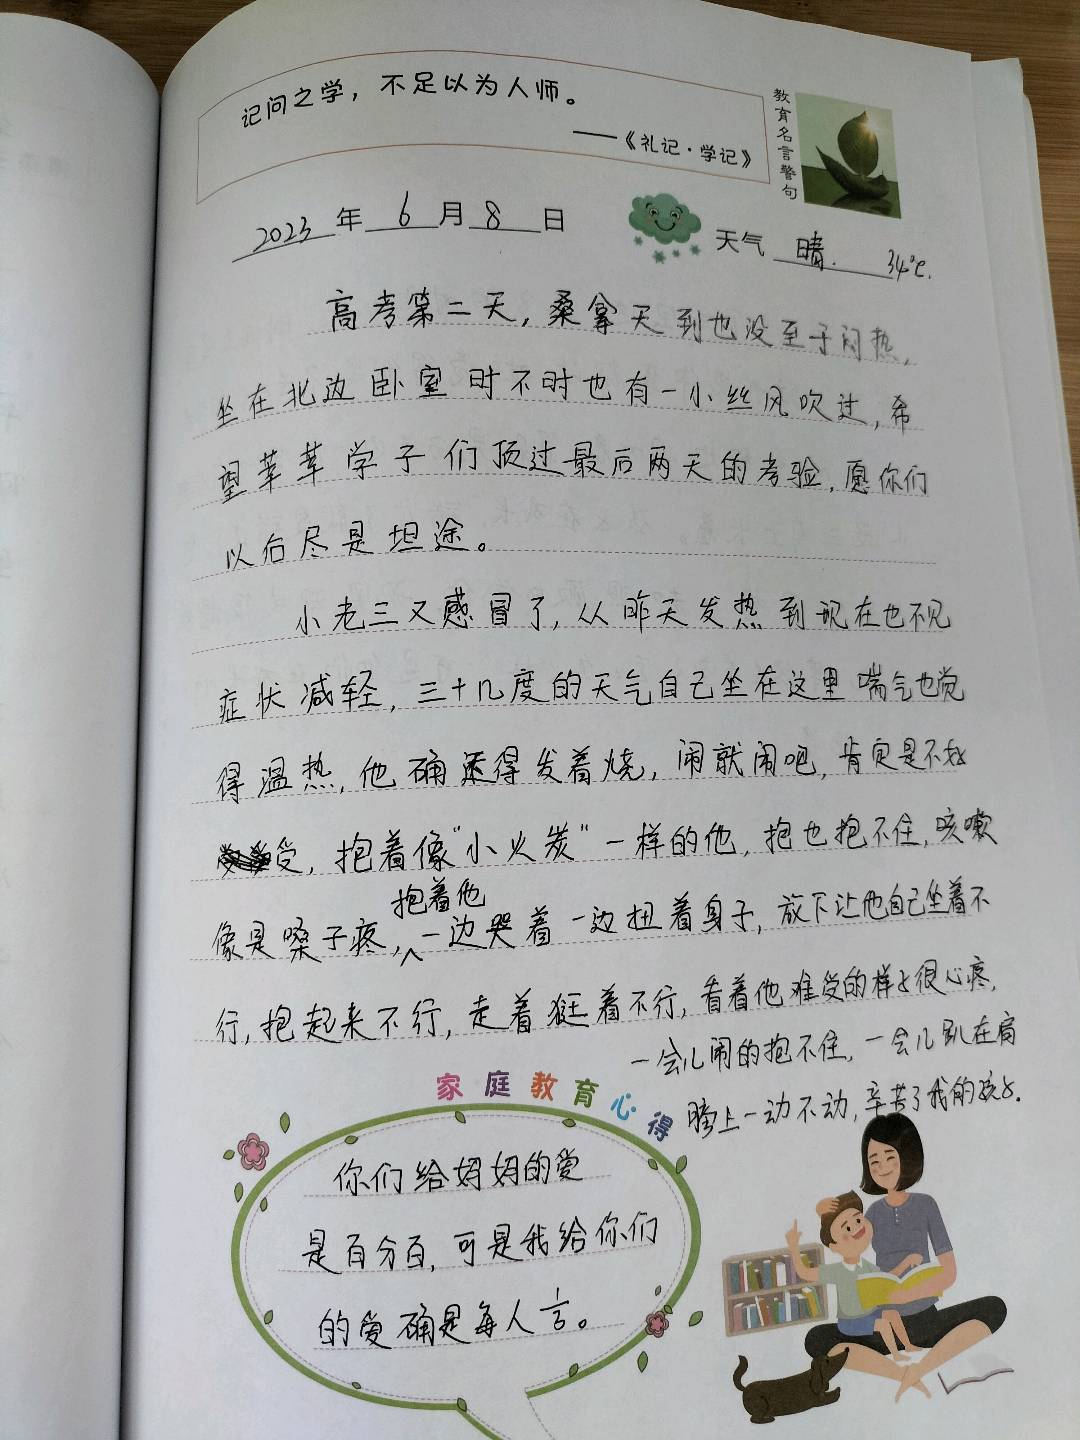 记问之学，不足以为人师。
——《礼记·学记》
教育名言警句
2023年6月8日
天气 晴. 34℃.
高考第二天，桑拿天到也没至于闷热，
坐在北边卧室时不时也有一小丝风吹过，希
望莘莘学子们顶过最后两天的考验，愿你们
以后尽是坦途。
小老三又感冒了，从昨天发热到现在也不见
症状减轻，三十几度的天气自己坐在这里喘气也觉
得温热，他确还得发着烧，闹就闹吧，肯定是不好
受，抱着像“小火炭”一样的他，抱也抱不住，咳嗽
抱着他
像是嗓子疼，一边哭着一边扭着身子，放下让他自己坐着不
行，抱起来不行，走着 着不行，看着他难受的样子很心疼，
一会儿闹的抱不住，一会儿趴在肩
膀上一动不动，辛苦了我的孩子．
家庭教育心得
你们给妈妈的爱
是百分百，可是我给你们
的爱确是每人 。